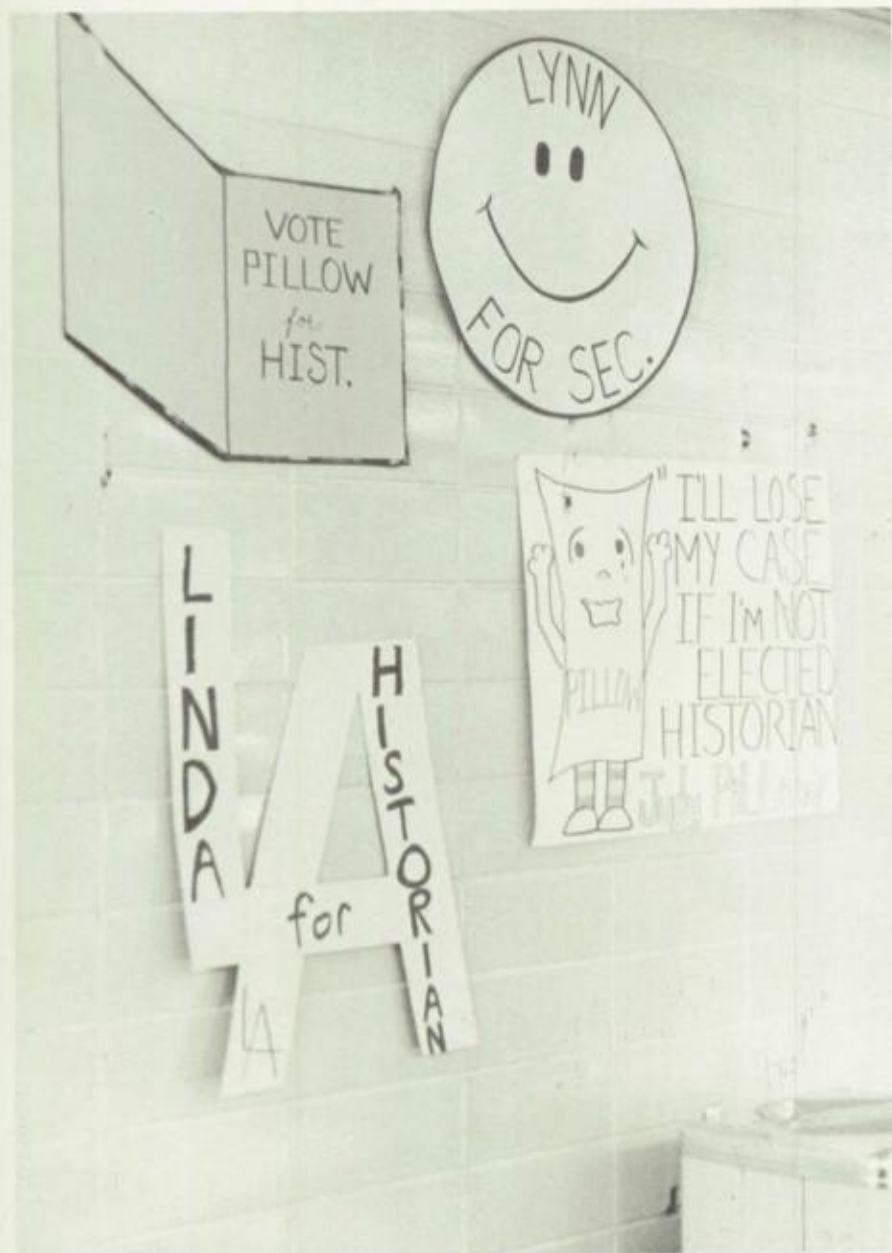 VOTE
PILLOW
for
HIST.
LYNN
FOR SEC.
"I'LL LOSE
MY CASE
IF I'M NOT
ELECTED
HISTORIAN
PILLOW
Judy PILLOW
LINDA
for
HISTORIAN
LA